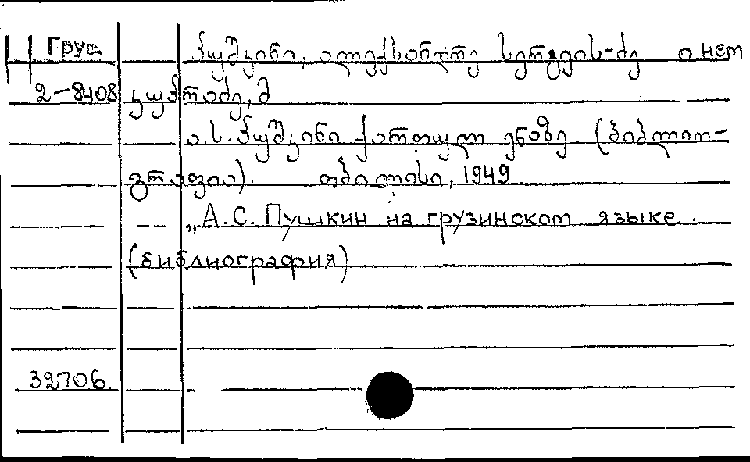 Груз პუშკინი, ალექსანდრე სერგეის-ძე о нем
2-8408
ა. ს. პუშკინი ქართულ ენაზე (ბიბლიო-
გრაფია). თბილისი, 1949
„А.С. Пушкин на грузинском языке.
(библиография)
32706.